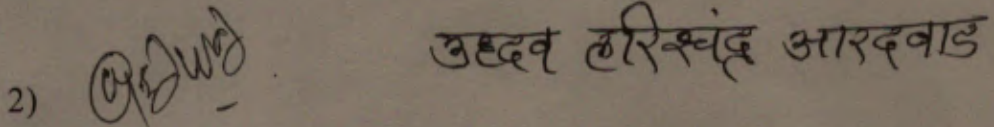 2) उद्धव हरिश्चंद्र आरदवाड